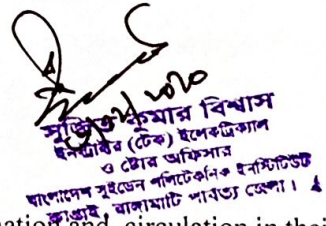 সুজিত কুমার বিশ্বাস
ইনস্ট্রাক্টর (টেক) ইলেকট্রিক্যাল
ও স্টোর অফিসার
বাংলাদেশ সুইডেন পলিটেকনিক ইনস্টিটিউট
কাপ্তাই রাঙ্গামাটি পার্বত্য জেলা।
and circulation in their